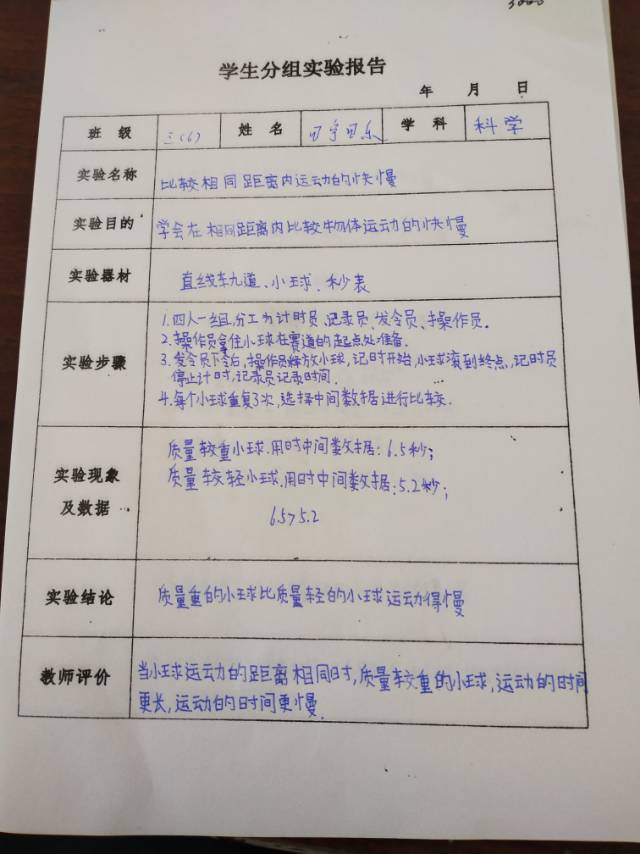 学生分组实验报告
年 月 日
班级 三(6) 姓名 学科 科学
实验名称 比较相同距离内运动的快慢
实验目的 学会在相同距离内比较物体运动的快慢
实验器材 直线轨道、小球、秒表
实验步骤
1.四人一组,分工为计时员、记录员、发令员、操作员.
2.操作员拿住小球在赛道的起点处准备.
3.发令员下令后,操作员释放小球,记时开始,小球滚到终点,记时员
停止计时,记录员记录时间.
4.每个小球重复3次,选择中间数据进行比较.
实验现象
及数据
质量较重小球.用时中间数据:6.5秒;
质量较轻小球.用时中间数据:5.2秒;
6.5>5.2
实验结论 质量重的小球比质量轻的小球运动得慢
教师评价 当小球运动的距离相同时,质量较重的小球,运动的时间
更长,运动的时间更慢.